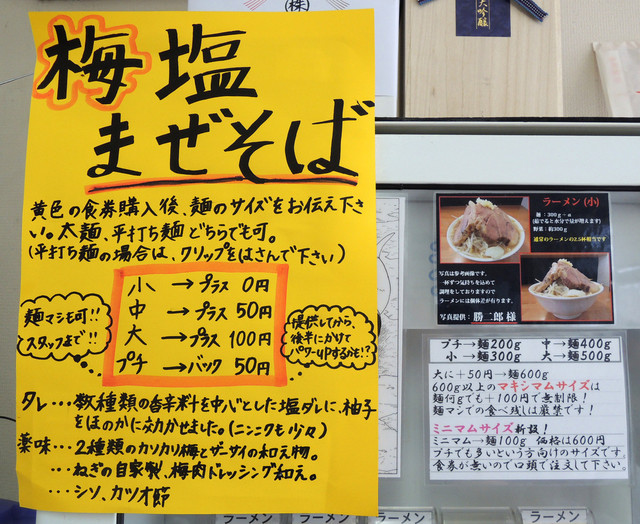 ㈱
大吟醸
梅塩
まぜそば
黄色の食券購入後、麺のサイズをお伝え下さ
い。太麺、平打ち麺どちらでも可。
(平打ち麺の場合は、クリップをはさんで下さい)
小→プラス 0円
中→プラス 50円
大→プラス 100円
プチ→バック 50円
麺マシも可!!
スタッフまで!!
提供してから、
後半にかけて
パワーUPするかも!?
タレ…数種類の香辛料を中心とした塩ダレに、柚子
をほのかに効かせました。(ニンニクも少々)
薬味…2種類のカリカリ梅とザーサイの和え物。
…ねぎの自家製、梅肉ドレッシング和え。
…シソ、カツオ節
ラーメン(小)
麺：300g－α
(茹でると水分で量が増えます)
野菜：約300g
通常のラーメンの2.5杯相当です
写真は参考画像です。
一杯ずつ気持ちを込めて
調理をしておりますので
ラーメンには個体差が有ります。
写真提供：勝二郎 様
プチ→麺200g 中→麺400g
小→麺300g 大→麺500g
大に＋50円→麺600g
600g以上のマキシマムサイズは
麺何gでも＋100円で無制限！
麺マシでの食べ残しは厳禁です！
ミニマムサイズ新設！
ミニマム→麺100g 価格は600円
プチでも多いという方向けのサイズです。
食券が無いので口頭で注文して下さい。
ラーメン
ラーメン
ラーメン
ラーメン